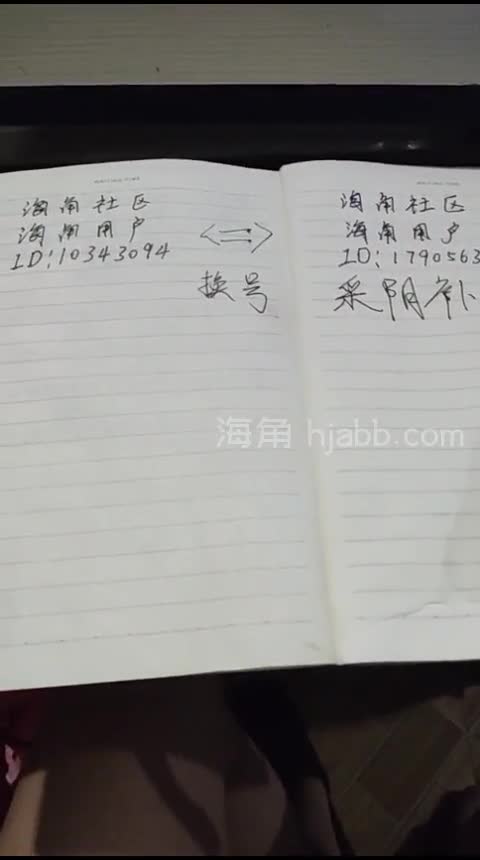 WRITING TIME
海角社区
海角用户
ID:10343094
<=>
换号
海角社区
海角用户
ID:1790563
采阴补
海角 hjabb.com